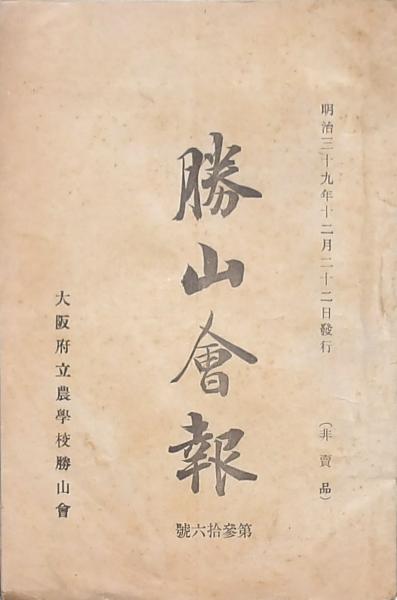 明治三十九年十二月二十二日發行
（非賣品）
勝山會報
第參拾六號
大阪府立農學校勝山會